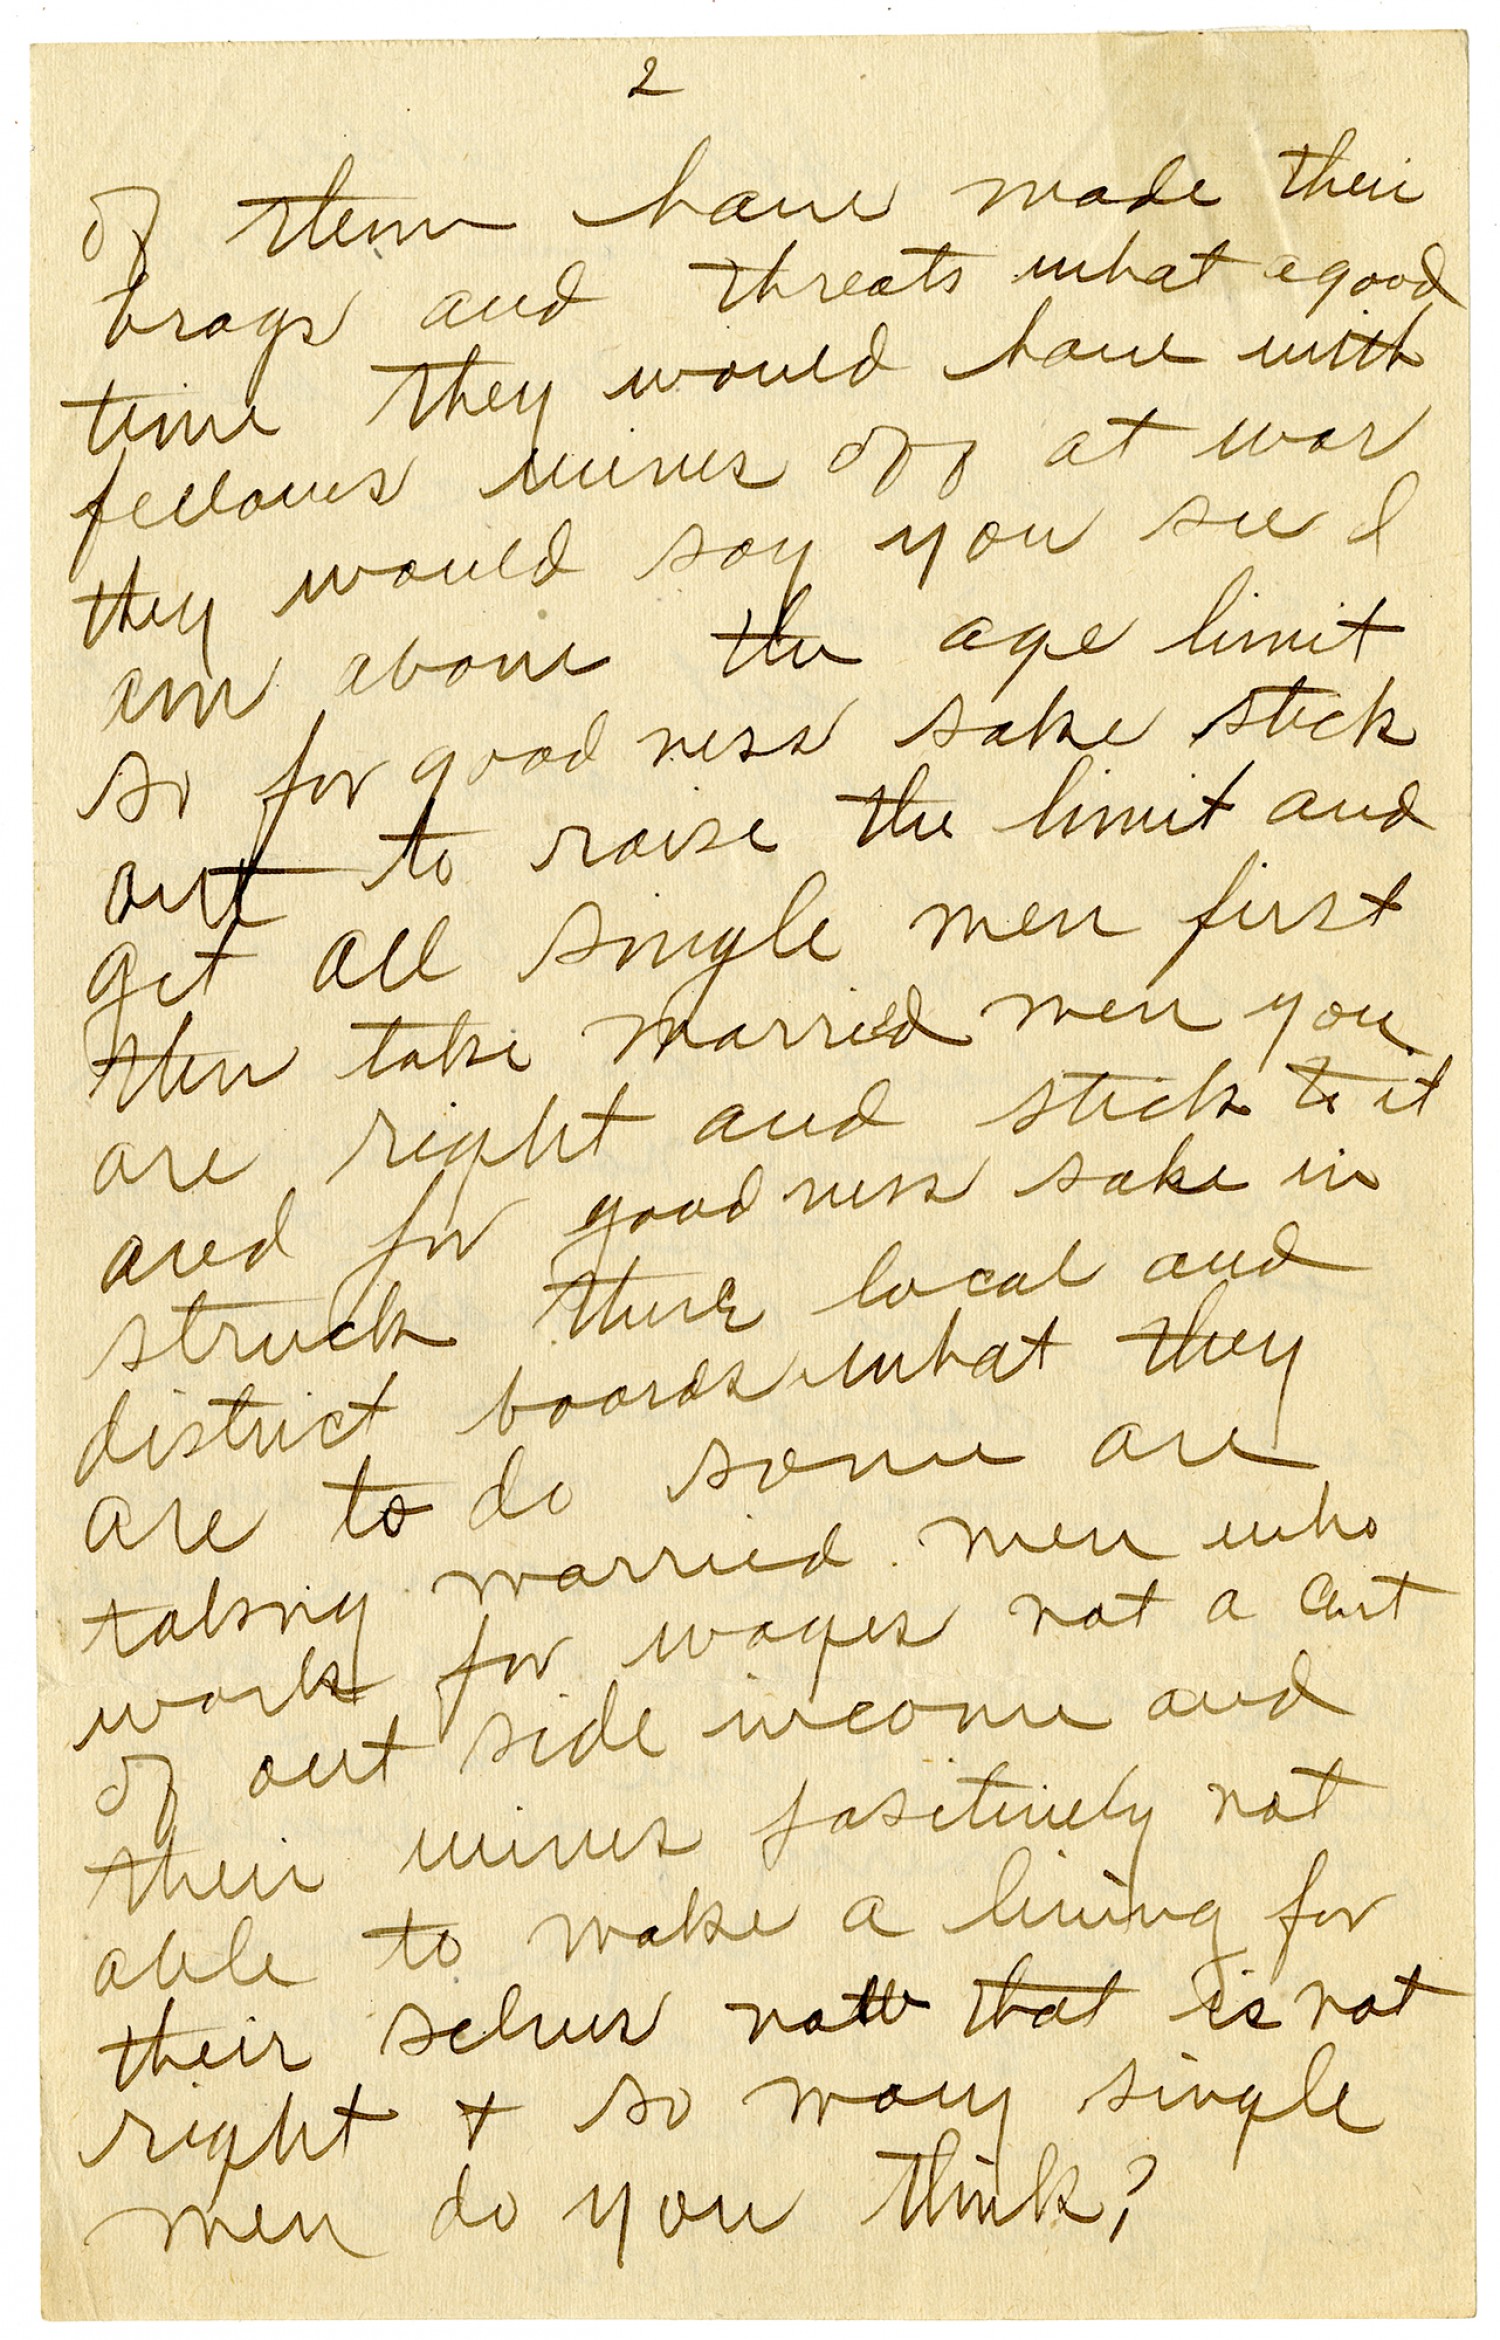 2
of them have made their
brags and threats what a good
time they would have with
fellows wives off at war
they would say you see I
am above the age limit
so for good ness sake stick
out to raise the limit and
get all single men first
then take married men you
are right and stick to it
and for good ness sake in
struck these local and
district boards what they
are to do some are
taking married men who
work for wages not a cent
of out side income and
their wives positively not
able to make a living for
their selves now that is not
right & so many single
men do you think?